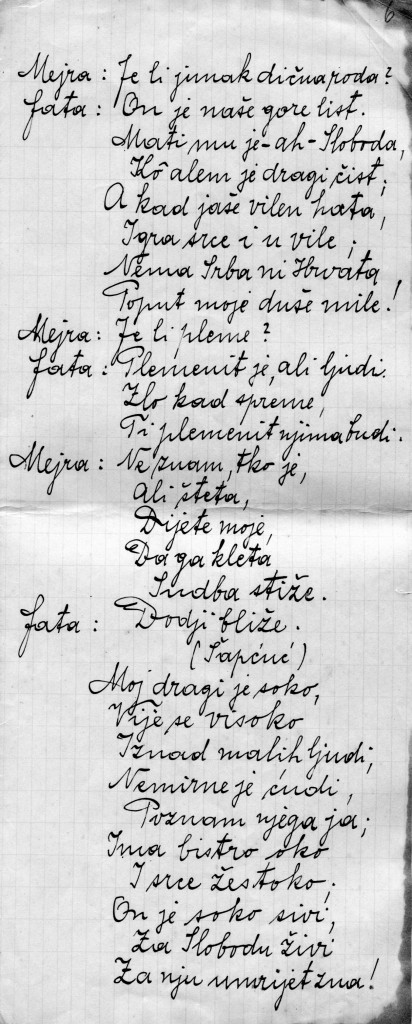 6
Mejra: Je li junak dična roda?
Fata: On je naše gore list.
Mati mu je - ah - Sloboda,
Kô alem je dragi čist;
A kad jaše vilen hata,
Igra srce i u vile;
Nema Srba ni Hrvata
Poput moje duše mile!
Mejra: Je li pleme?
Fata: Plemenit je, ali ljudi.
Zlo kad spreme,
Ti plemenit njima budi.
Mejra: Ne znam, tko je,
Ali šteta,
Dijete moje,
Da ga kleta
Sudba stiže.
Fata: Dodji bliže.
(Šapćuć)
Moj dragi je soko,
Vije se visoko
Iznad malih ljudi,
Nemirne je ćudi,
Poznam njega ja;
Ima bistro oko
I srce žestoko;
On je soko sivi,
Za Slobodu živi
Za nju umrijet zna!